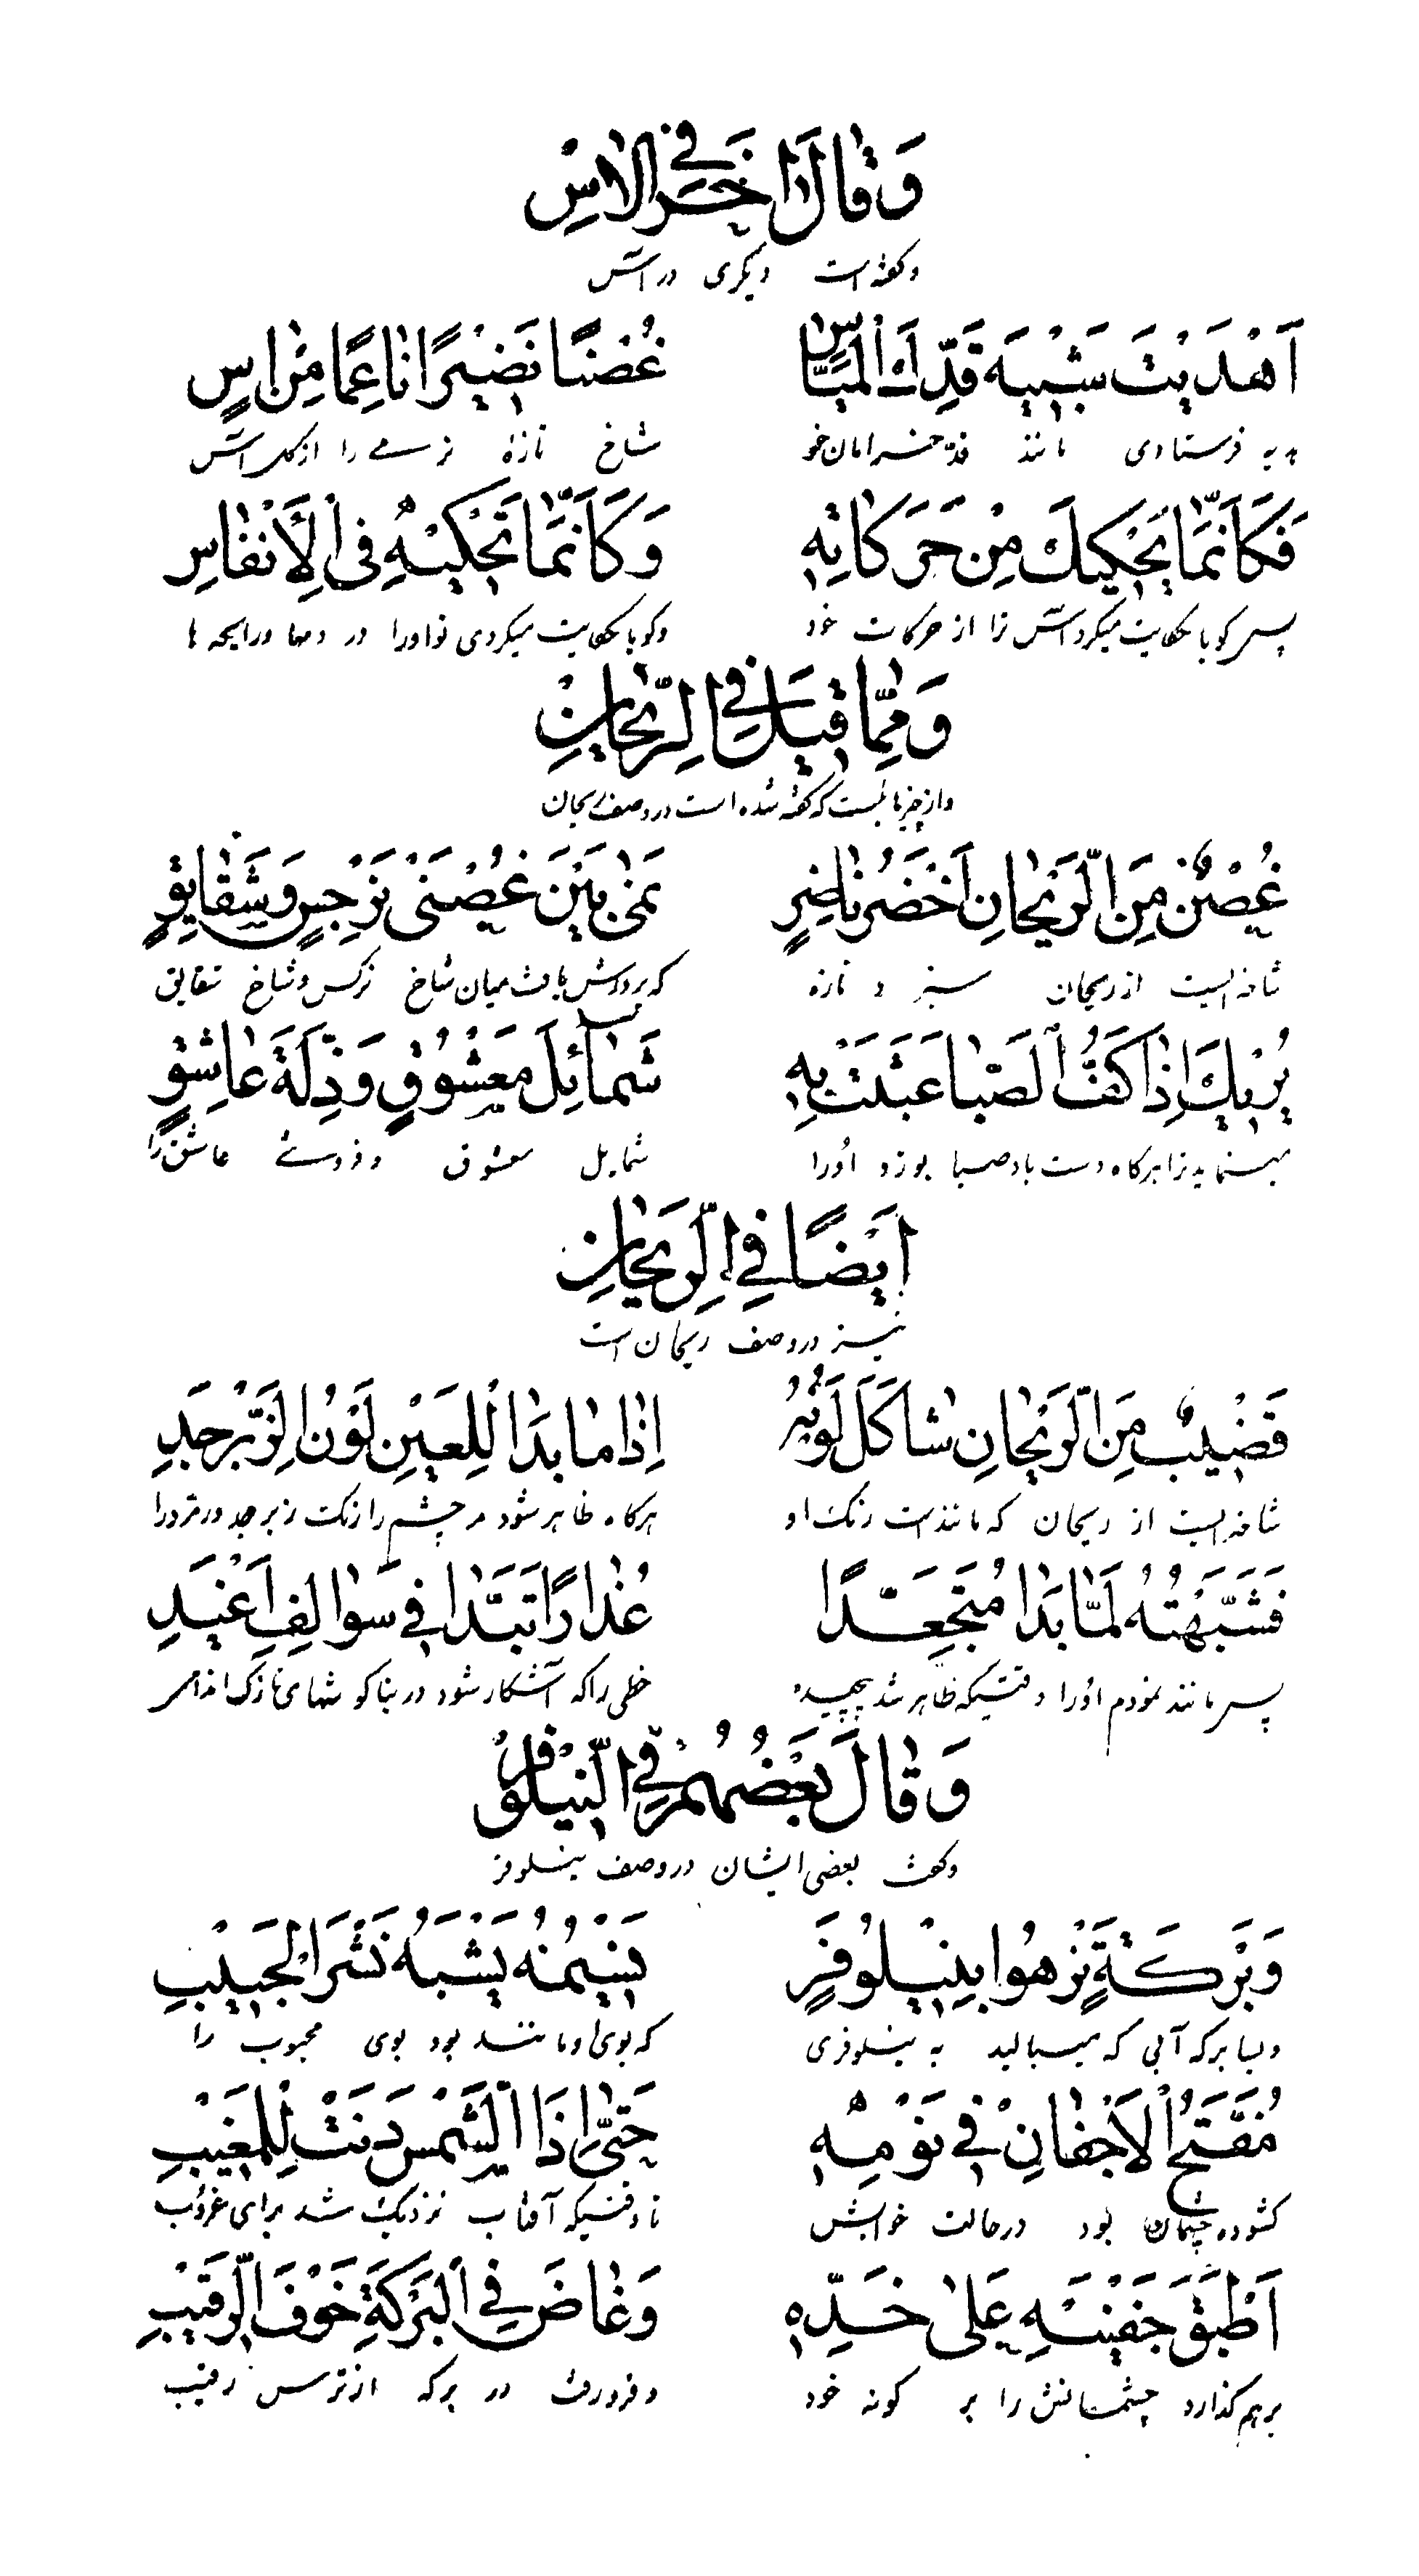 وَقَالَ اٰخَرُ فِي الْاٰسِ
و گفته است دیگری در آس
اَهْدَيْتَ شَبِيْهَ قَدِّكَ الْمَيَّاسِ غُصْنًا نَضِيْرًا نَاعِمًا مِنْ اٰسٍ
هدیه فرستادی مانند قد خرامان خود شاخ تازهٔ نرمے را از گل آس
فَكَاَنَّمَا يَحْكِيْكَ مِنْ حَرَكَاتِهٖ وَكَاَنَّمَا تَحْكِيْهِ فِى الْاَنْفَاسِ
پس گویا حکایت میکرد آس ترا از حرکات خود و گویا حکایت میکردی تو او را در دمها و رایحه ها
وَمِمَّا قِيْلَ فِي الرَّيْحَانِ
و از چیزهائیست که گفته شده است در وصف ریحان
غُصْنٌ مِنَ الرَّيْحَانِ اَخْضَرُ نَاضِرٍ نَمٰى بَيْنَ غُصْنَىْ نَرْجِسٍ وَشَقَايِقٍ
شاخه ایست از ریحان سبز و تازه که پرورش یافت میان شاخ نرگس و شاخ شقایق
يُرْيْكَ اِذَا كَفُّ الصَّبَا عَبَثَتْ بِهٖ شَمَائِلَ مَعْشُوْقٍ وَذِلَّةَ عَاشِقٍ
مینماید ترا هرگاه دست باد صبا بوزد او را شمایل معشوق و فروتنے عاشق را
اَيْضًا فِي الرَّيْحَانِ
نیز در وصف ریحان است
قَضِيْبٌ مِنَ الرَّيْحَانِ شَاكَلَ لَوْنُهُ اِذَا مَا بَدَا لِلْعَيْنِ لَوْنَ الزَّبَرْجَدِ
شاخه ایست از ریحان که مانند است رنگ او هرگاه ظاهر شود مر چشم را رنگ زبرجد
فَشَبَّهْتُهُ لَمَّا بَدَا مُتَجَعِّدًا عُذَارًا تَبَدَّا فِي سَوَالِفِ اَغْيَدِ
پس مانند نمودم او را وقتیکه ظاهر شد پیچیده خطی را که آشکار شود در بناگوشهای نازک اندامی
وَقَالَ بَعْضُهُمْ فِي النَّيْلُوْفَرِ
و گفت بعضی ایشان در وصف نیلوفر
وَبَرْكَةٍ تَزْهُوا بِنِيْلُوفَرٍ نَسِيْمُهُ يَشْبَهُ نَشْرَ الْحَبِيْبِ
و بسا برکه آبی که میبالید به نیلوفری که بوی او مانند بود بوی محبوب را
مُفَتَّحُ الْاَجْفَانِ فِي نَوْمِهٖ حَتّٰى اِذَا الشَّمْسُ دَنَتْ لِلْمَغِيْبِ
گشوده چشمان بود در حالت خوابش تا وقتیکه آفتاب نزدیک شد برای غروب
اَطْبَقَ جَفْنَيْهِ عَلٰى خَدِّهٖ وَغَاصَ فِي الْبَرْكَةِ خَوْفَ الرَّقِيْبِ
برهم گذارد چشمانش را بر گونه خود و فرو رفت در برکه از ترس رقیب